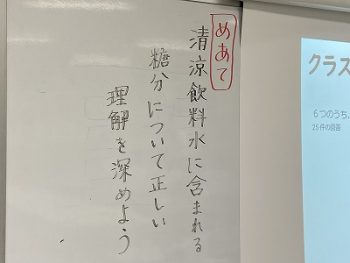 めあて
清涼飲料水に含まれる
糖分について正しい
理解を深めよう
クラス
6つのうち
25件の回答